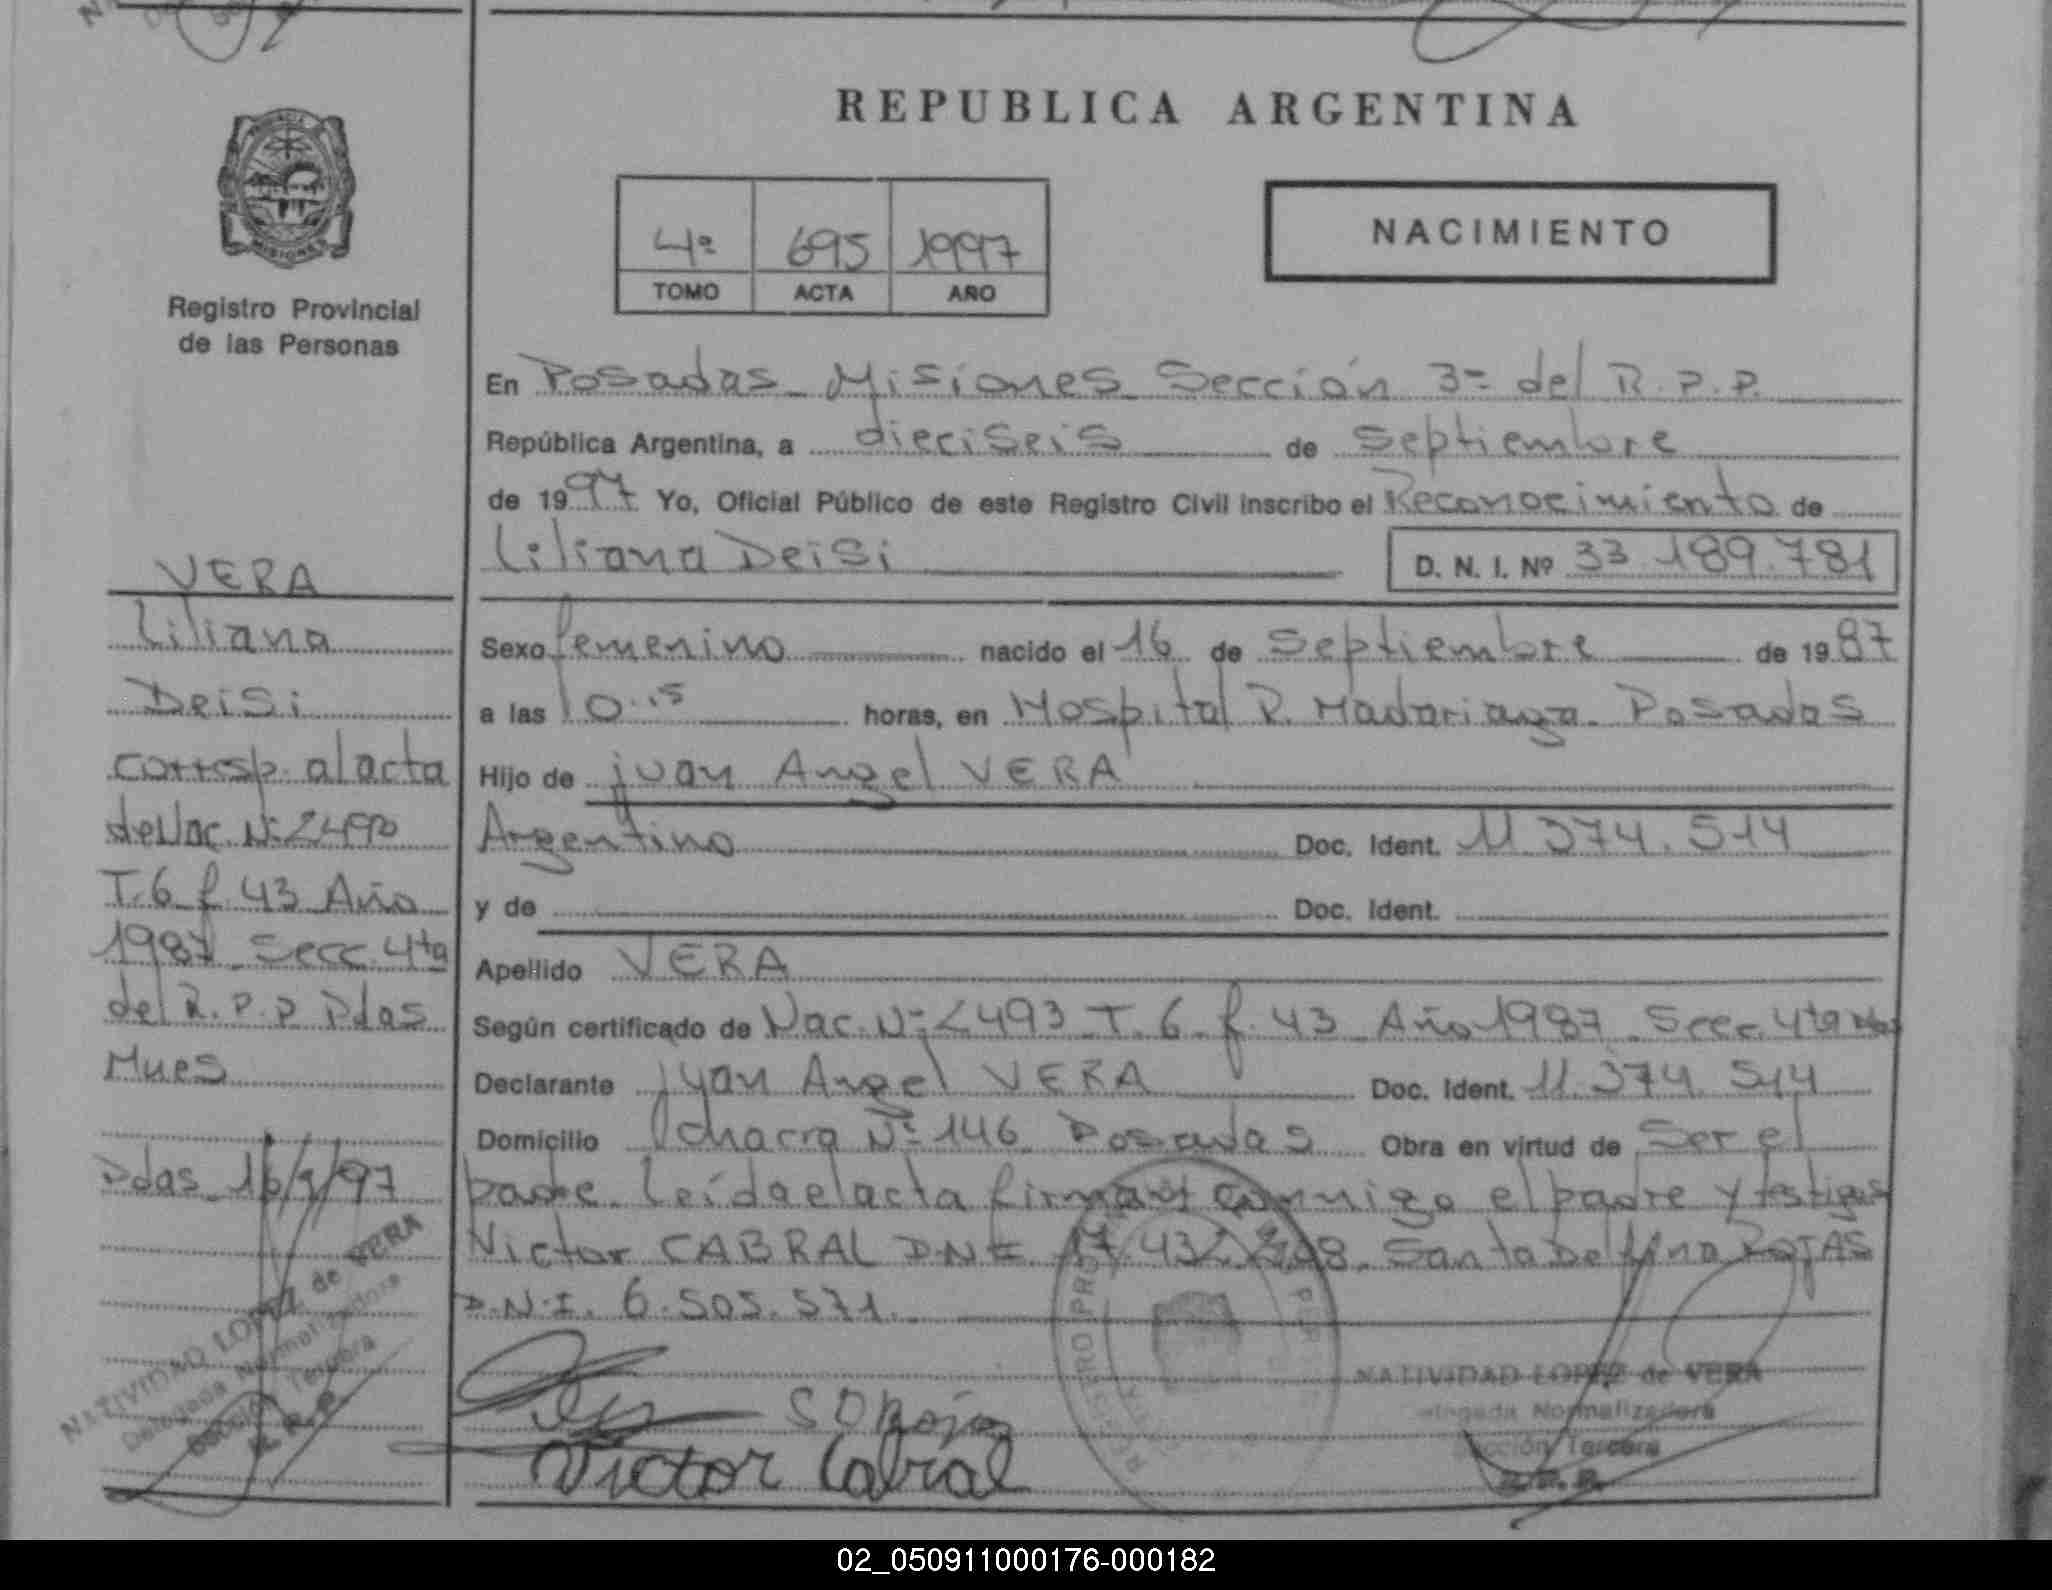 REPUBLICA ARGENTINA
4ª 695 1997
TOMO ACTA AÑO
NACIMIENTO
PROVINCIA
MISIONES
Registro Provincial
de las Personas
VERA
Liliana
Deisi
corresp. al acta
de Nac. Nº
T. 6 f. 43 Año
1987 Secc. 4ta
del R.P.P Pdas
Mnes
Pdas 16/9/97
NATIVIDAD LOPEZ de VERA
Delegada Normalizadora
Sección Tercera
R. P. P.
En Posadas Misiones Sección 3ª del R.P.P.
República Argentina, a dieciseis de Septiembre
de 1997 Yo, Oficial Público de este Registro Civil inscribo el Reconocimiento de
Liliana Deisi D. N. I. Nº 33.189.781
Sexo femenino nacido el 16 de Septiembre de 1987
a las 10.15 horas, en Hospital R. Madariaga Posadas
Hijo de juan Angel VERA
Argentino Doc. Ident. 11.374.514
y de Doc. Ident.
Apellido VERA
Según certificado de Nac. Nº 2493 T. 6 f. 43 Año 1987 Secc. 4ta
Declarante juan Angel VERA Doc. Ident. 11.374.514
Domicilio chacra Nº 146 Posadas Obra en virtud de Ser el
padre. Leída el acta firman conmigo el padre y testigos
Victor CABRAL D.N.I. Santa Delfina ROJAS
D.N.I. 6.505.571.
S D Rojas
Victor Cabral
NATIVIDAD LOPEZ de VERA
Delegada Normalizadora
Sección Tercera
R. P. P.
02_050911000176-000182